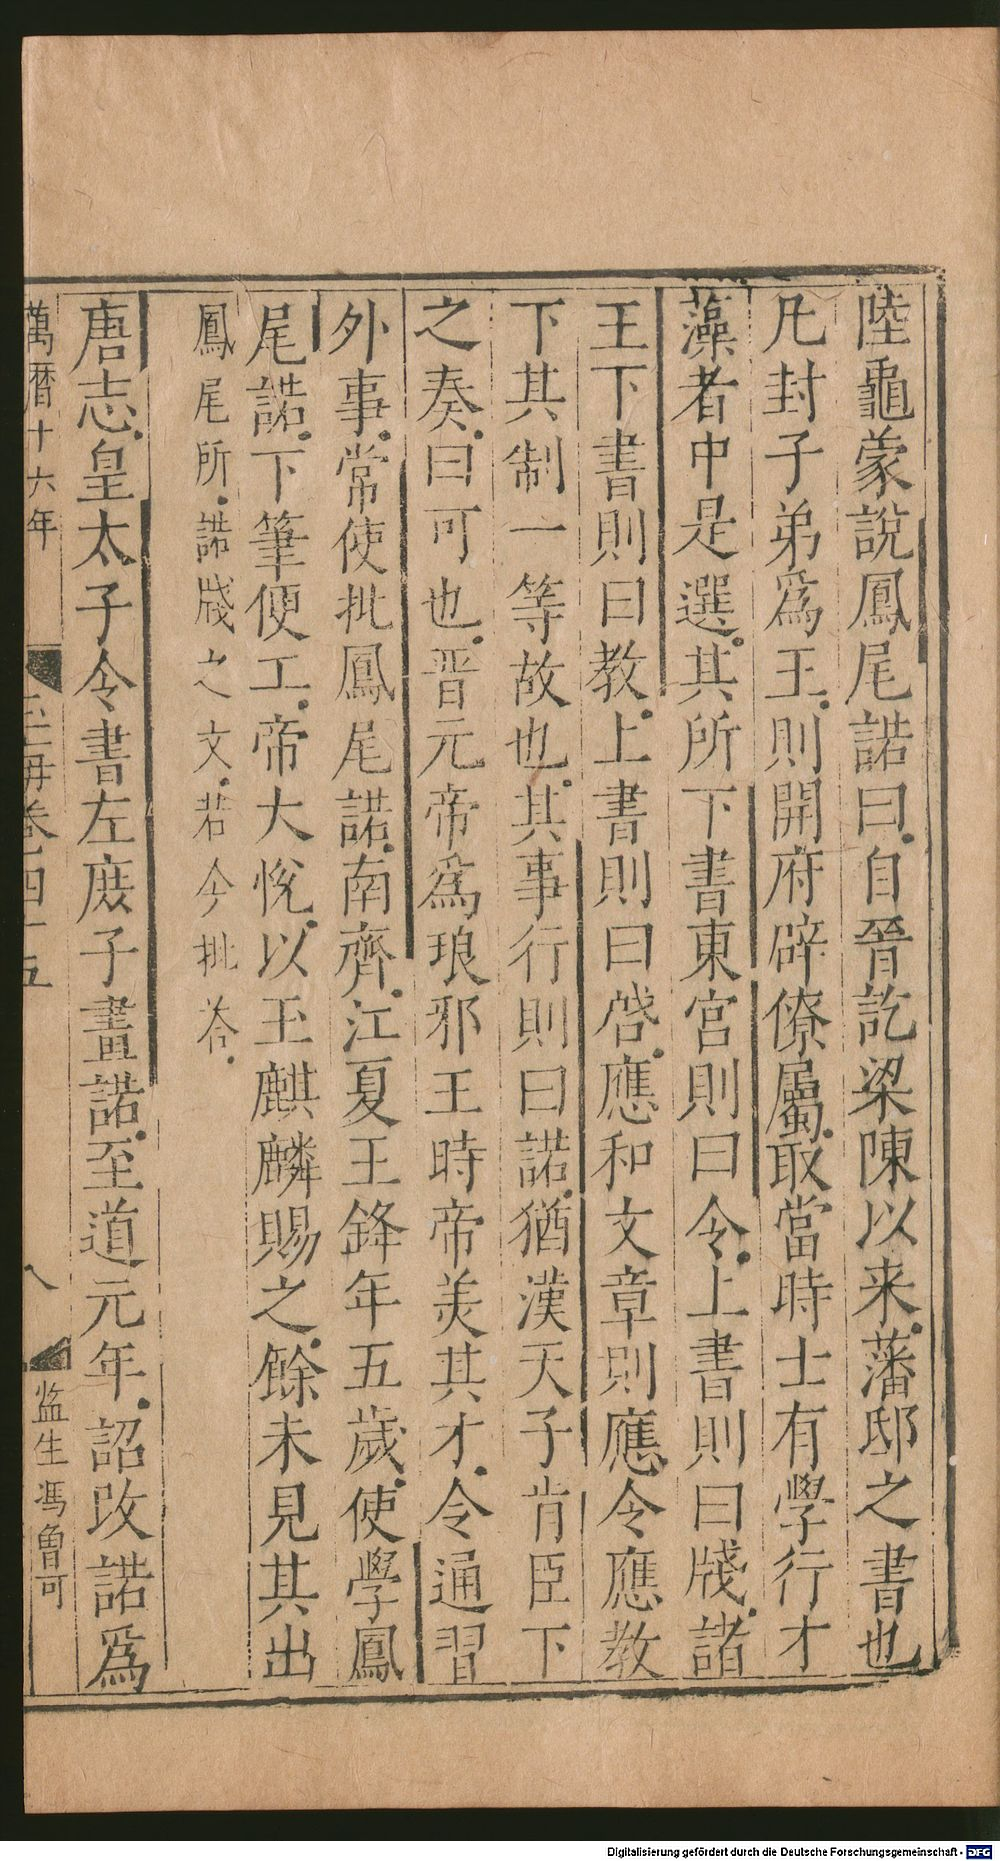 陸龜蒙說鳳尾諾曰自晉訖梁陳以来藩邸之書也
凡封子弟爲王則開府辟僚屬取當時士有學行才
藻者中是選其所下書東宮則曰令上書則曰牋諸
王下書則曰教上書則曰啓應和文章則應令應教
下其制一等故也其事行則曰諾猶漢天子肯臣下
之奏曰可也晋元帝爲琅邪王時帝羙其才令通習
外事常使批鳳尾諾南齊江夏王鋒年五歲使學鳳
尾諾下筆便工帝大悅以玉麒麟賜之餘未見其出
鳳尾所諾牋之文若今批荅
唐志皇太子令書左庻子畫諾至道元年詔改諾爲
萬曆十六年
玉海卷四十五
八
監生馮曾可
Digitalisierung gefördert durch die Deutsche Forschungsgemeinschaft - DFG